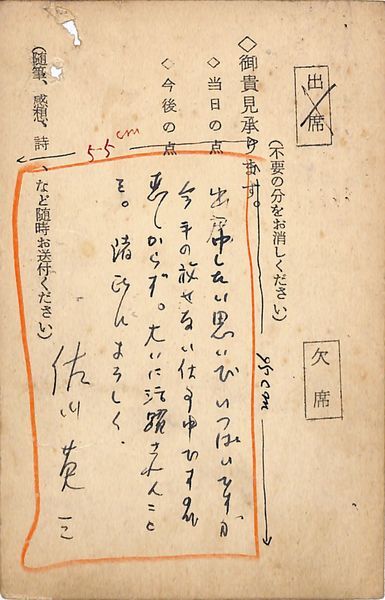 出席
欠席
(不要の分をお消しください)
◇御貴見承ります。
◇当日の点
◇今後の点
5.5cm
9.5cm
出席したい思いでいっぱいですが
今手の放せない仕事中ですので
悪しからず。大いに活躍されんこと
を。諸氏によろしく。
佐川英三
(随筆、感想、詩、など随時お送付ください)